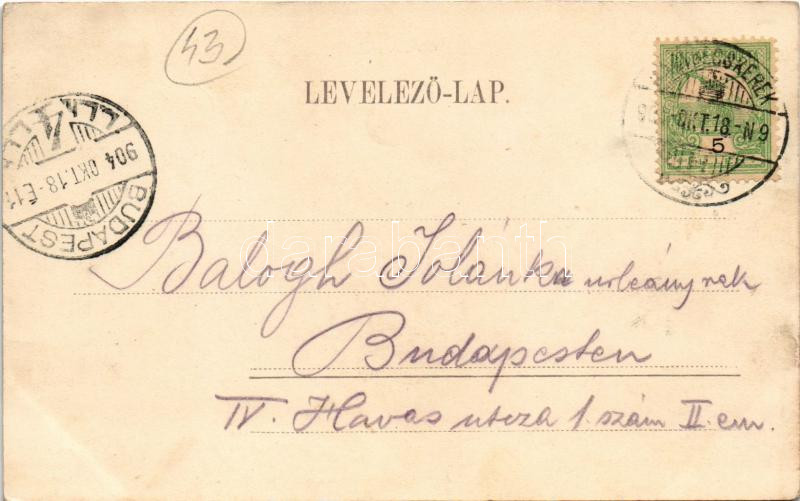 43
LEVELEZŐ-LAP.
BECSKEREK
OKT. 18.-N9
5
904 OKT. 18.-E11
BUDAPEST
4
darabanth
Balogh Jolánka urleánynek
Budapesten
IV. Havas utcza 1. szám II. em.